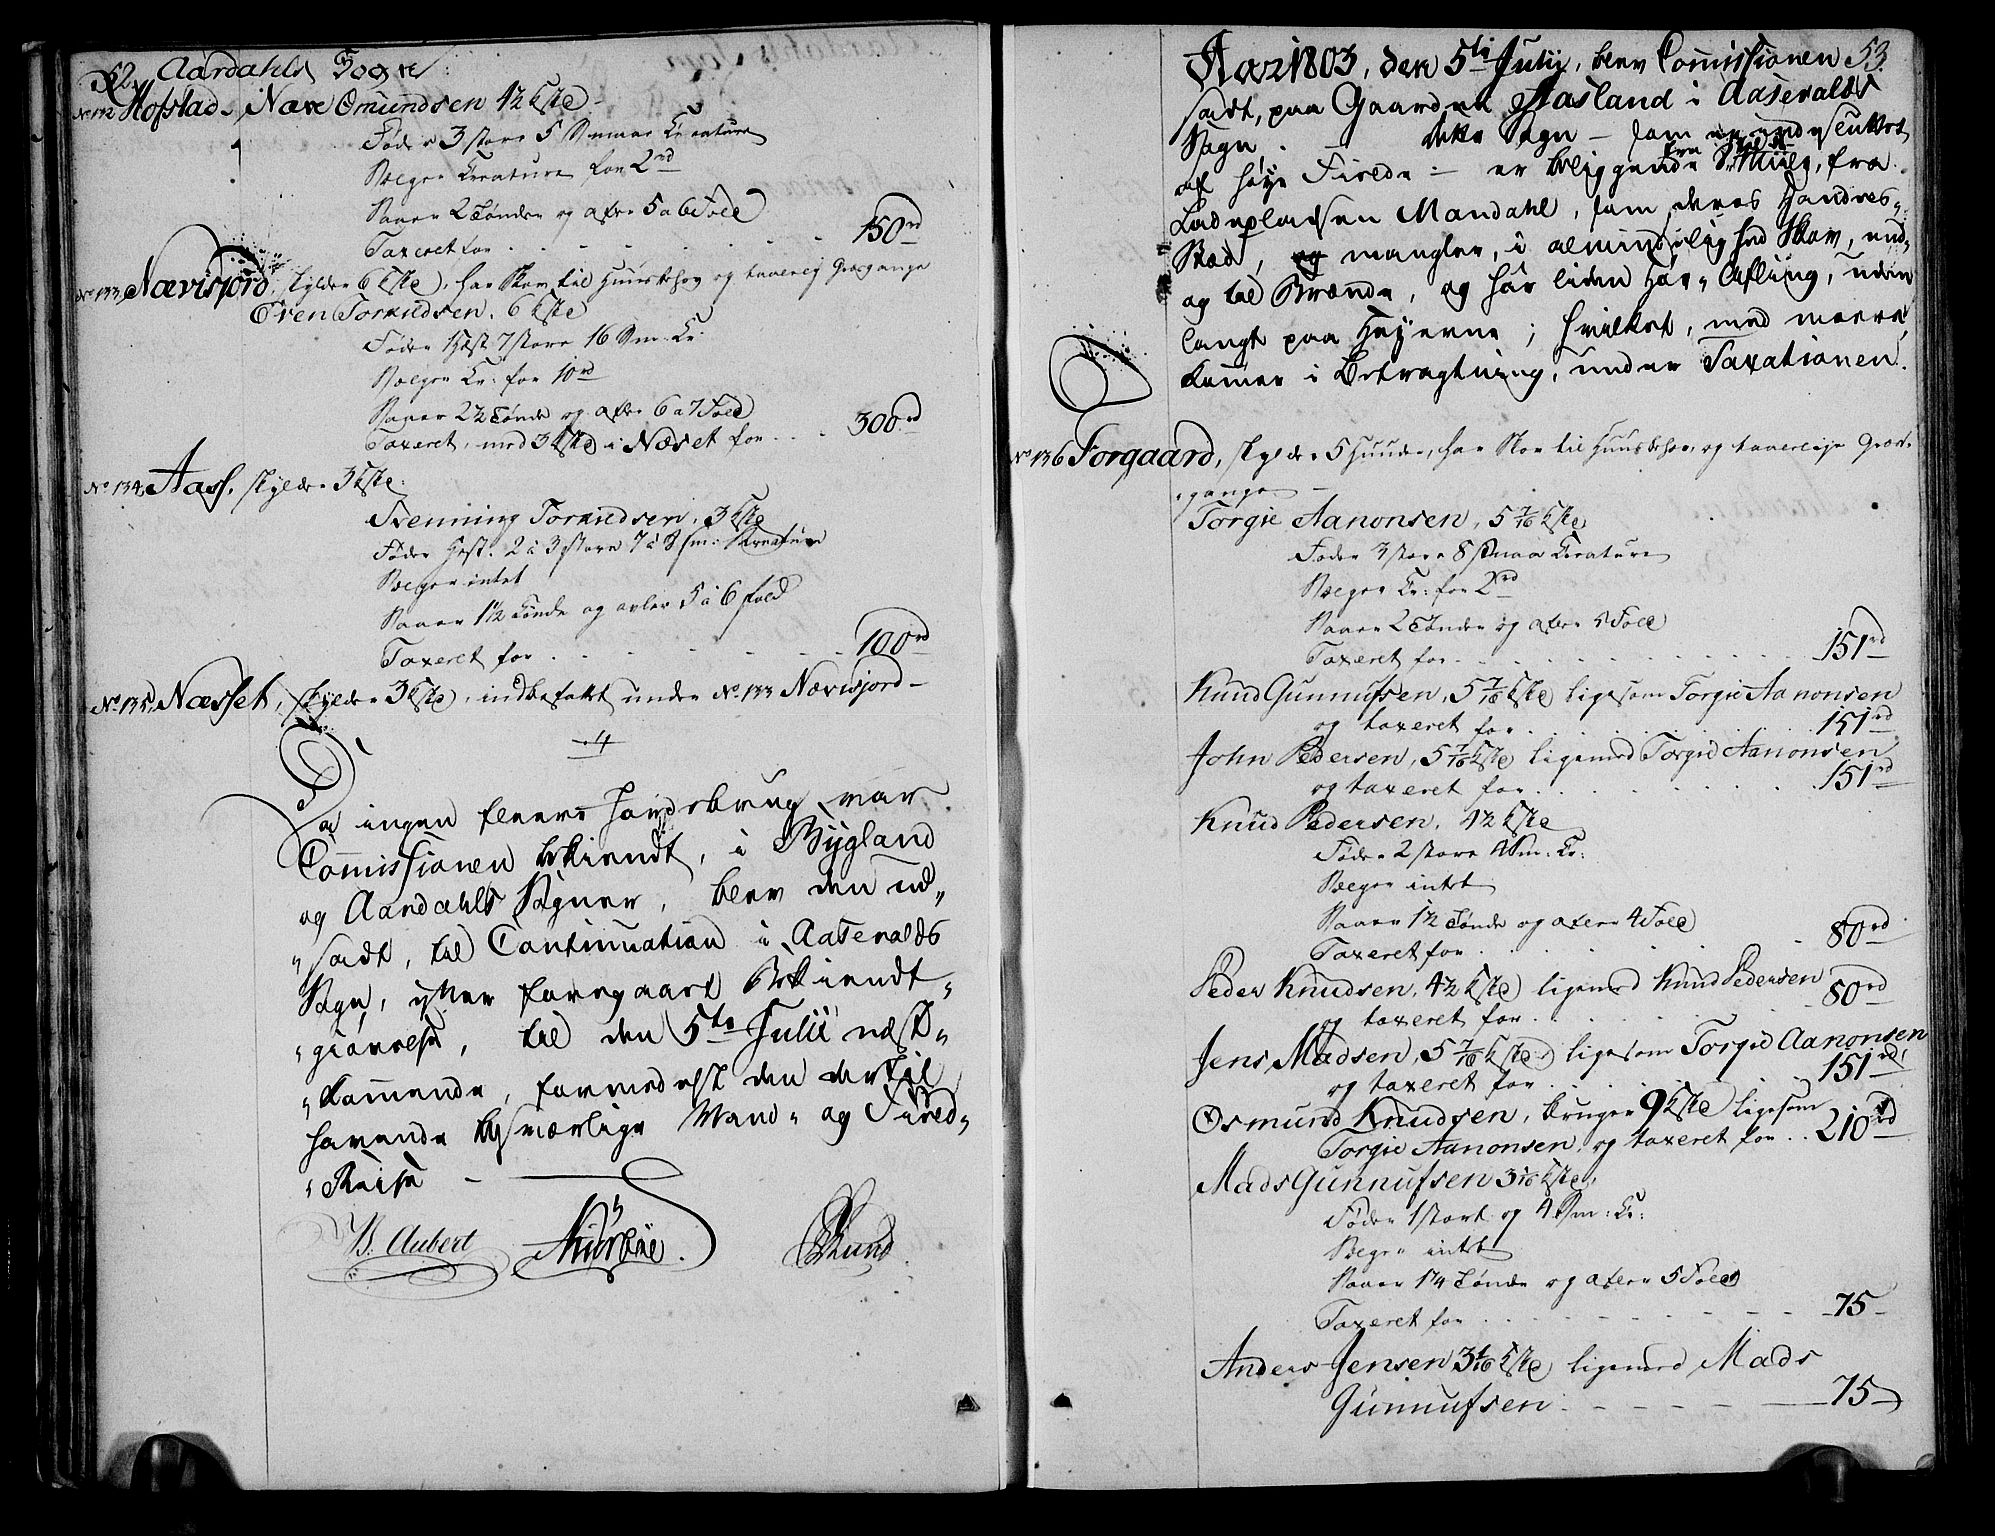 52. Aardahls Sogn
No 132 Hofstad. Næve Omundsen 4½ kste
Føder 3 store 5 Smaae Creature
Sælger Creature for 2rd
Saaer 2 Tønder og avler 5 a 6 Fold
Taxeret for . . . 150rd
No 133 Nævisjord, skylder 6 kste, har Skov til Huusbehov og taalelig Græsgange
Even Torkildsen. 6 kste
Føder 1 Hæst 7 store 16 Sm: Cr:
Sælger Cr: for 10rd
Saaer 2½ Tønde og avler 6 a 7 Fold
Taxeret, med 3 kste i Næset for . . . 300rd
No 134 Aass, skylder 3 kste.
Trenning Torkildsen. 3 kste
Føder Hest. 2 á 3 store 7 á 8 sm: Kreature
Sælger intet
Saaer 1½ Tønde og avler 5 á 6 fold
Taxeret for . . . 100rd
No 135 Næsset, skylder 3 kste, indbefattet under No 133 Nævisjord –
Da ingen fleere Jordebrug var
Commissionen bekiendt, i Bygland
og Aardahls Sogner, blev den ud„
„sadt, til Continuation i Aaseralds
Sogn, efter foregaaet Bekiendt„
„giørelse, til den 5te Julii næst„
„kommende, formedelst den dertil
havende besværlige Vand- og Field„
„Reise –
B. Aubert
Aar 1803, den 5te Julii, blev Commissionen 53.
sadt, paa Gaarden Aasland i Aaseralds
Sogn. – dette Sogn – som er
af høye Fielde – er beliggende 8 Miile, fra
Ladepladsen Mandahl, som deres Handels„
Stæd, og mangler, i almindelighed Skov, end„
og til Brænde, og har liden Høe-Avling, uden
langt paa Heyerne; hvilket, med meere,
kommer i Betragtning, under Taxationen.
No 136 Forgaard, skylder 5 Huuder, har Skov til Huusbehov, og taalelige Græs„
„gange –
Torgie Aanonsen, 5 7/16 kste
Føder 3 store 8 smaa Creature
Sælger Cr: for 2rd
Saaer 2 Tønder og avler 5 Fold
Taxeret for . . . 151rd
Knud Gunnufsen, 5 7/16 kste ligesom Torgie Aanonsen
og taxeret for . . . 151rd
John Pedersen, 5 7/16 kste ligemed Torgie Aanonsen
og taxeret for . . . 151rd
Knud Pedersen, 4½ kste
Føder 2 store 4 Sm: Cr:
Sælger intet
Saaer 1½ Tønde og avler 4 Fold
Taxeret for . . . 80rd
Peder Knudsen, 4½ kste ligemed Knud Pedersen
og taxeret for . . . 80rd
Jens Madsen, 5 7/16 kste ligesom Torgie Aanonsen
og taxeret for . . . 151rd
Osmund Knudsen, bruger 9 kste ligesom
Torgie Aanonsen, og taxeret for . . 210rd
Mads Gunnufsen
Føder 1 stort og 4 Sm: Cr:
Sælger intet
Saaer 1¼ Tønde og avler 5 Fold
Taxeret for . . . 75 –
Anders Jensen ligemed Mads
Gunnufsen . . . 75 –